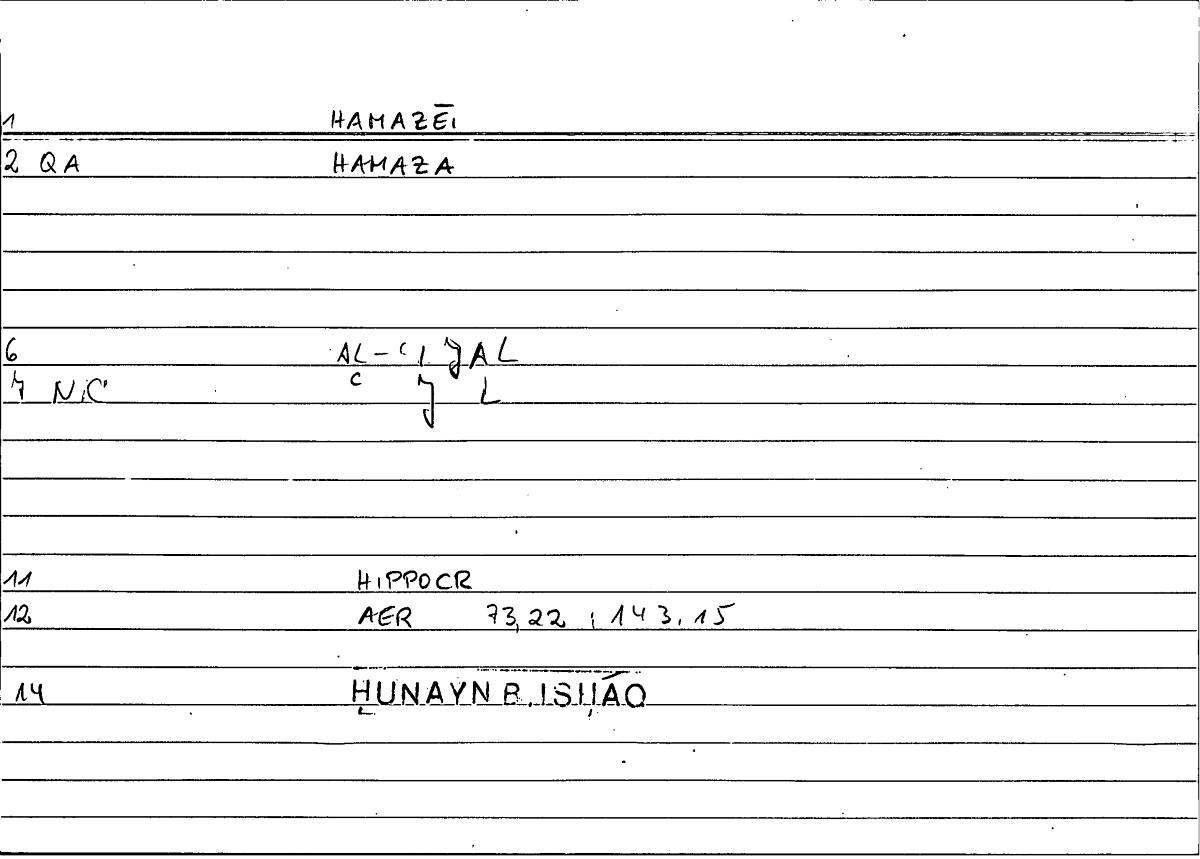 1 HAMAZĒI
2 QA HAMAZA
6 AL-ʿIJAL
7 NiC C J L
11 HiPPOCR
12 AER 73,22 ; 143.15
14 ḤUNAYN B. ISḤĀQ